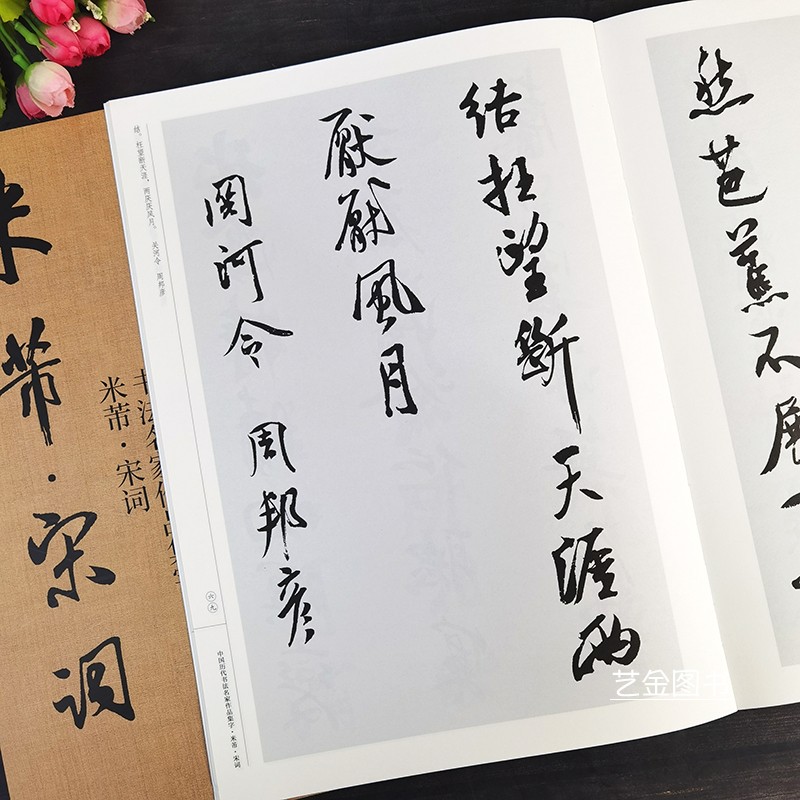 然芭蕉不展
結枉望斷天涯兩
厭厭風月
関河令 周邦彦
结。枉望断天涯，两厌厌风月。 关河令 周邦彦
六九
中国历代书法名家作品集字·米芾·宋词
米芾·宋词
书法名家作品
米芾·宋词
艺金图书